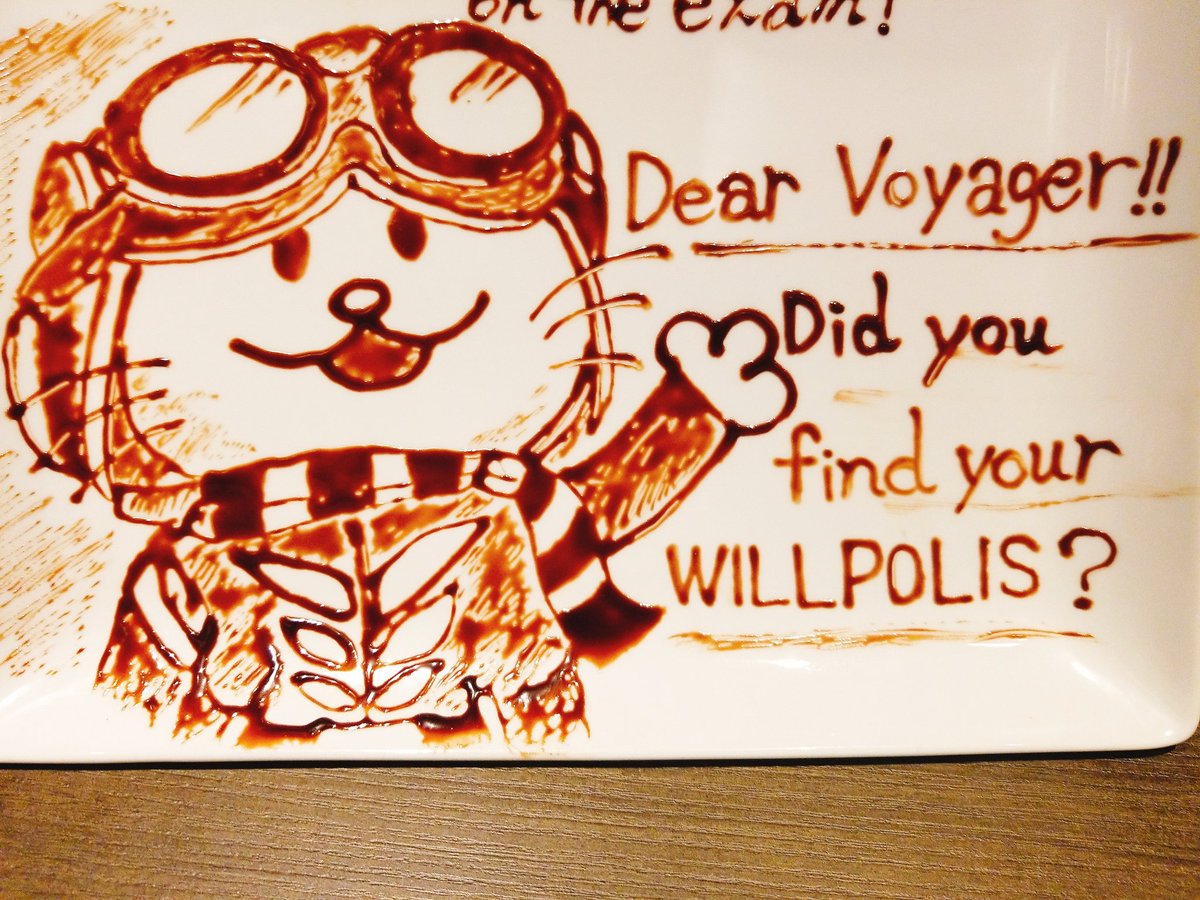 on the exam!
Dear Voyager!!
Did you
find your
WILLPOLIS?